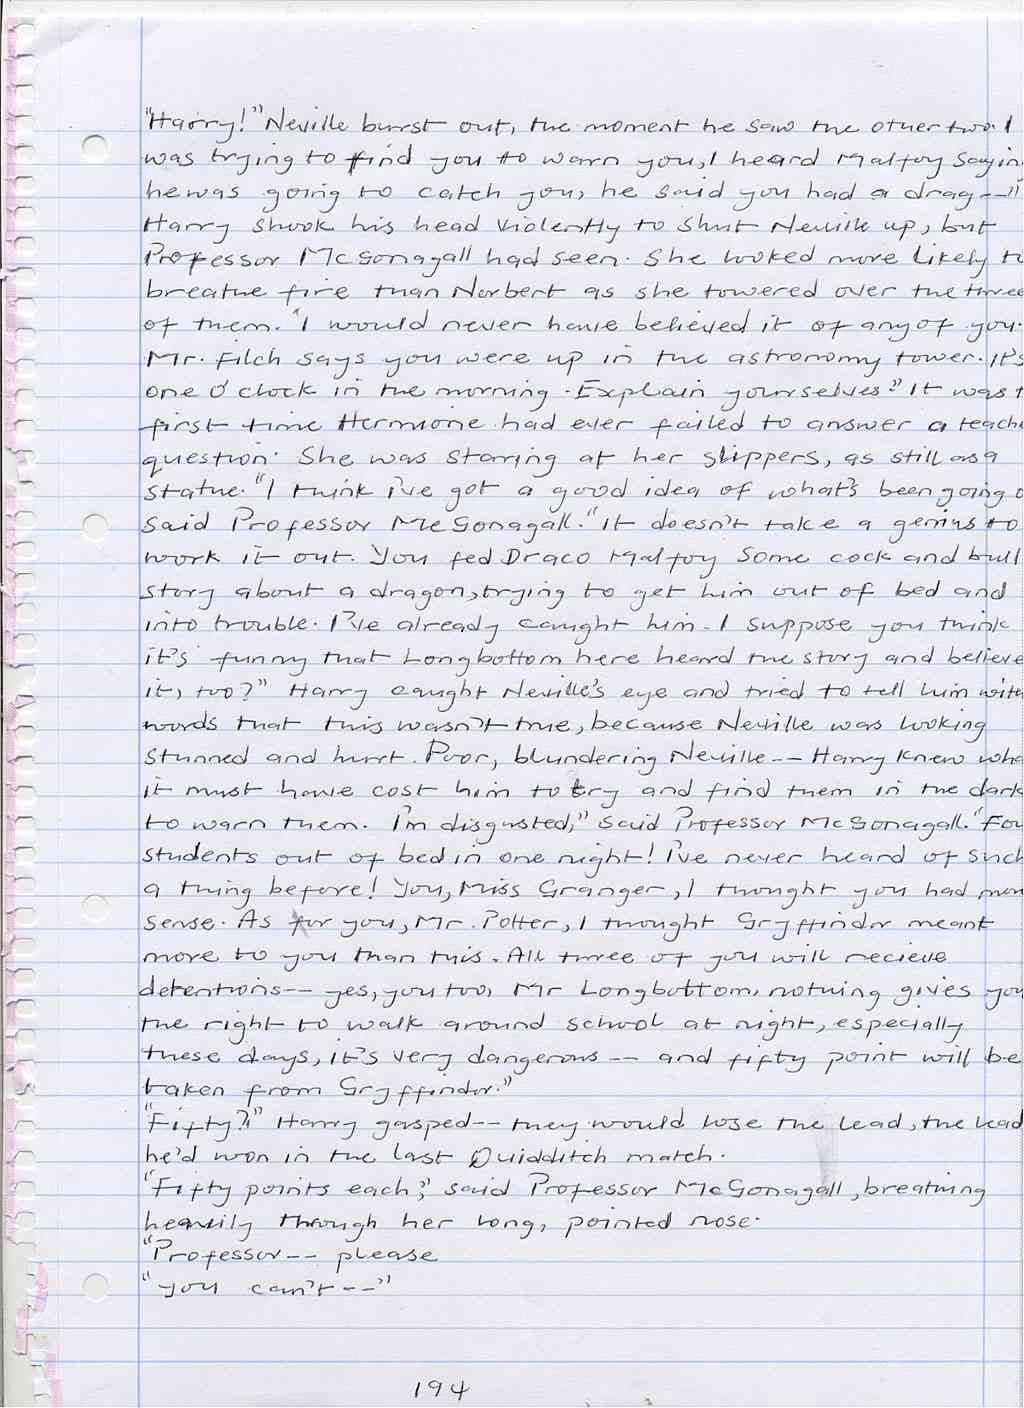 "Harry!" Neville burst out, the moment he saw the other two. I
was trying to find you to warn you, I heard Malfoy sayin
he was going to catch you, he said you had a drag--"
Harry shook his head violently to shut Neville up, but
Professor McGonagall had seen. She looked more likely to
breathe fire than Norbert as she towered over the three
of them. "I would never have believed it of any of you.
Mr. Filch says you were up in the astronomy tower. It's
one o'clock in the morning. Explain yourselves." It was t
first time Hermione had ever failed to answer a teache
question. She was staring at her slippers, as still as a
statue. "I think i've got a good idea of what's been going o
said Professor McGonagall. "It doesn't take a genius to
work it out. You fed Draco Malfoy some cock and bull
story about a dragon, trying to get him out of bed and
into trouble. I've already caught him. I suppose you think
it's funny that Longbottom here heard the story and believe
it, too?" Harry caught Neville's eye and tried to tell him with
words that this wasn't true, because Neville was looking
stunned and hurt. Poor, blundering Neville -- Harry knew wha
it must have cost him to try and find them in the dark
to warn them. I'm disgusted," said Professor McGonagall. "Fou
students out of bed in one night! I've never heard of such
a thing before! You, Miss Granger, I thought you had mor
sense. As for you, Mr. Potter, I thought Gryffindor meant
more to you than this. All three of you will recieve
detentions -- yes, you too, Mr Longbottom, nothing gives you
the right to walk around school at night, especially
these days, it's very dangerous -- and fifty point will be
taken from Gryffindor."
"Fifty?" Harry gasped -- they would lose the lead, the lead
he'd won in the last Quidditch match.
"Fifty points each," said Professor McGonagall, breathing
heavily through her long, pointed nose.
"Professor -- please
"you can't --"
194